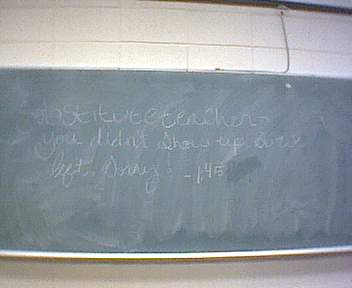 substitute teacher-
you didn't show up so we
left. Sorry! -1.45